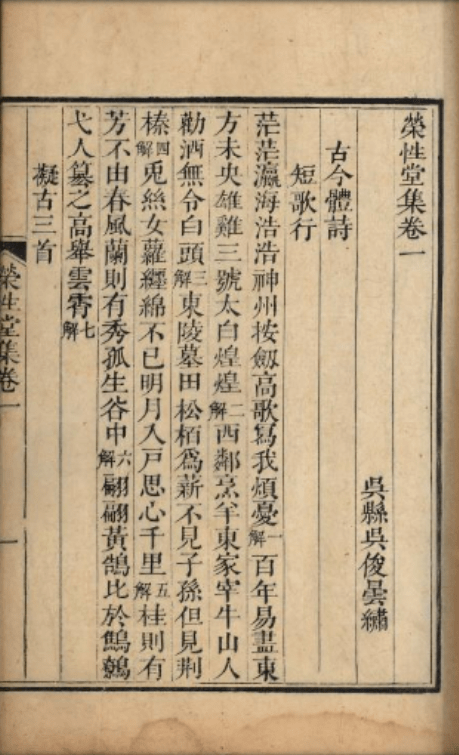 榮性堂集卷一
吳縣吳俊曇繡
古今體詩
短歌行
茫茫瀛海浩浩神州按劔高歌寫我煩憂一解百年易盡東
方未央雄雞三號太白煌煌二解西鄰烹羊東家宰牛山人
勸酒無令白頭三解東陵墓田松栢爲薪不見子孫但見荆
榛四解兎絲女蘿纏綿不已明月入戸思心千里五解桂則有
芳不由春風蘭則有秀孤生谷中六解翩翩黃鵠比於鷦鷯
弋人篡之高舉雲霄七解
擬古三首
榮性堂集卷一
一